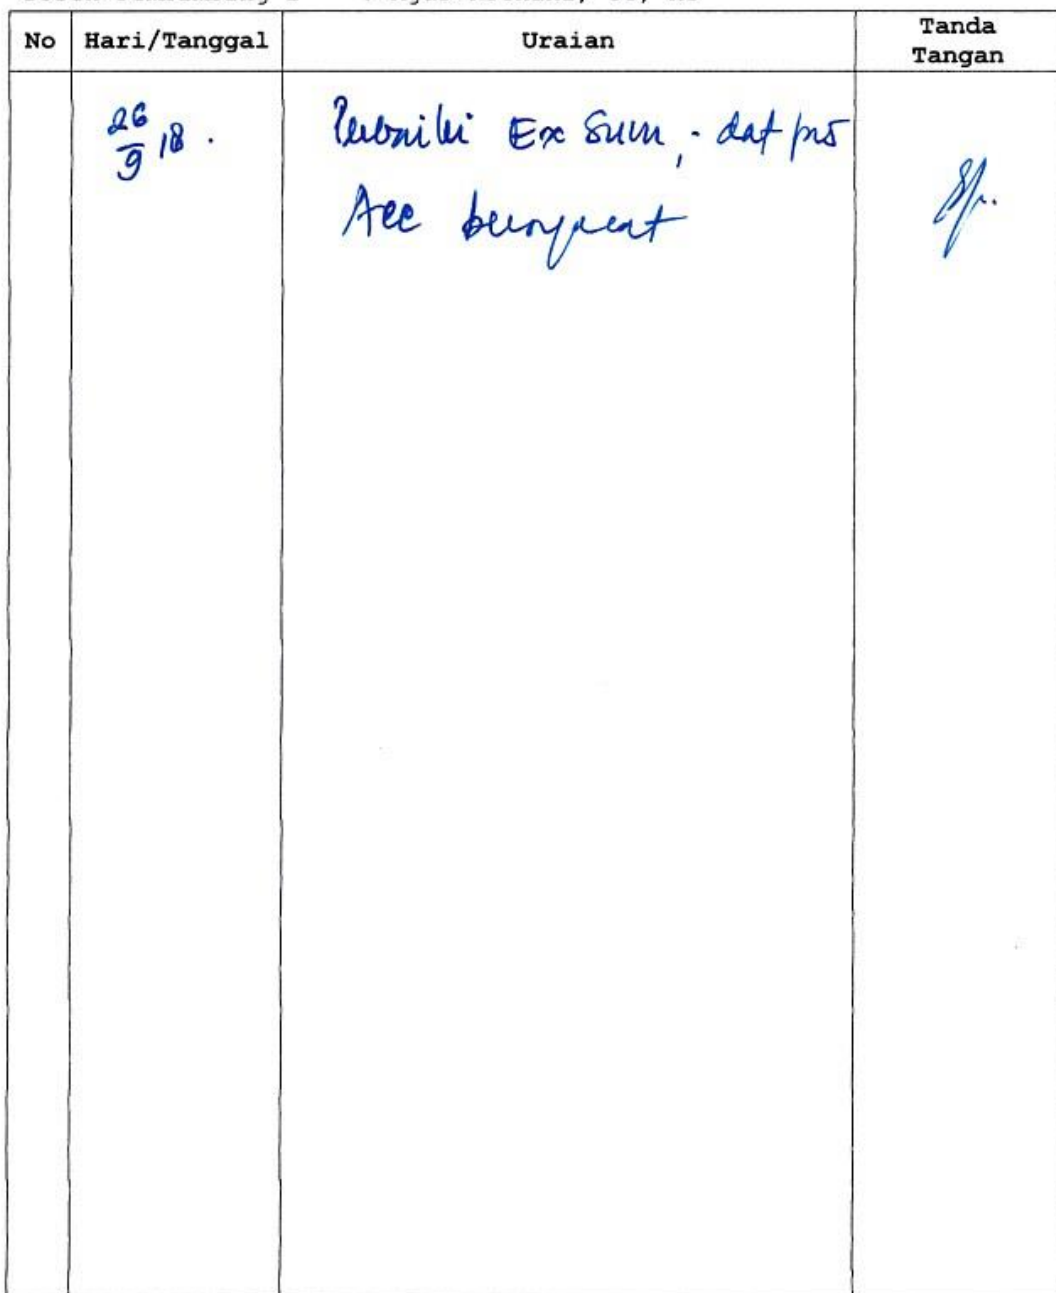 No Hari/Tanggal Uraian Tanda Tangan
26/9 18 . Perbaiki Ex Sum, - daf pus
Acc bersyarat